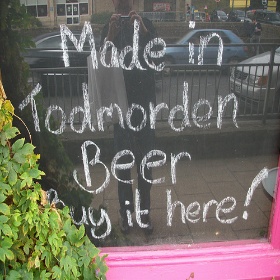 Made in
Todmorden
Beer
Buy it here!